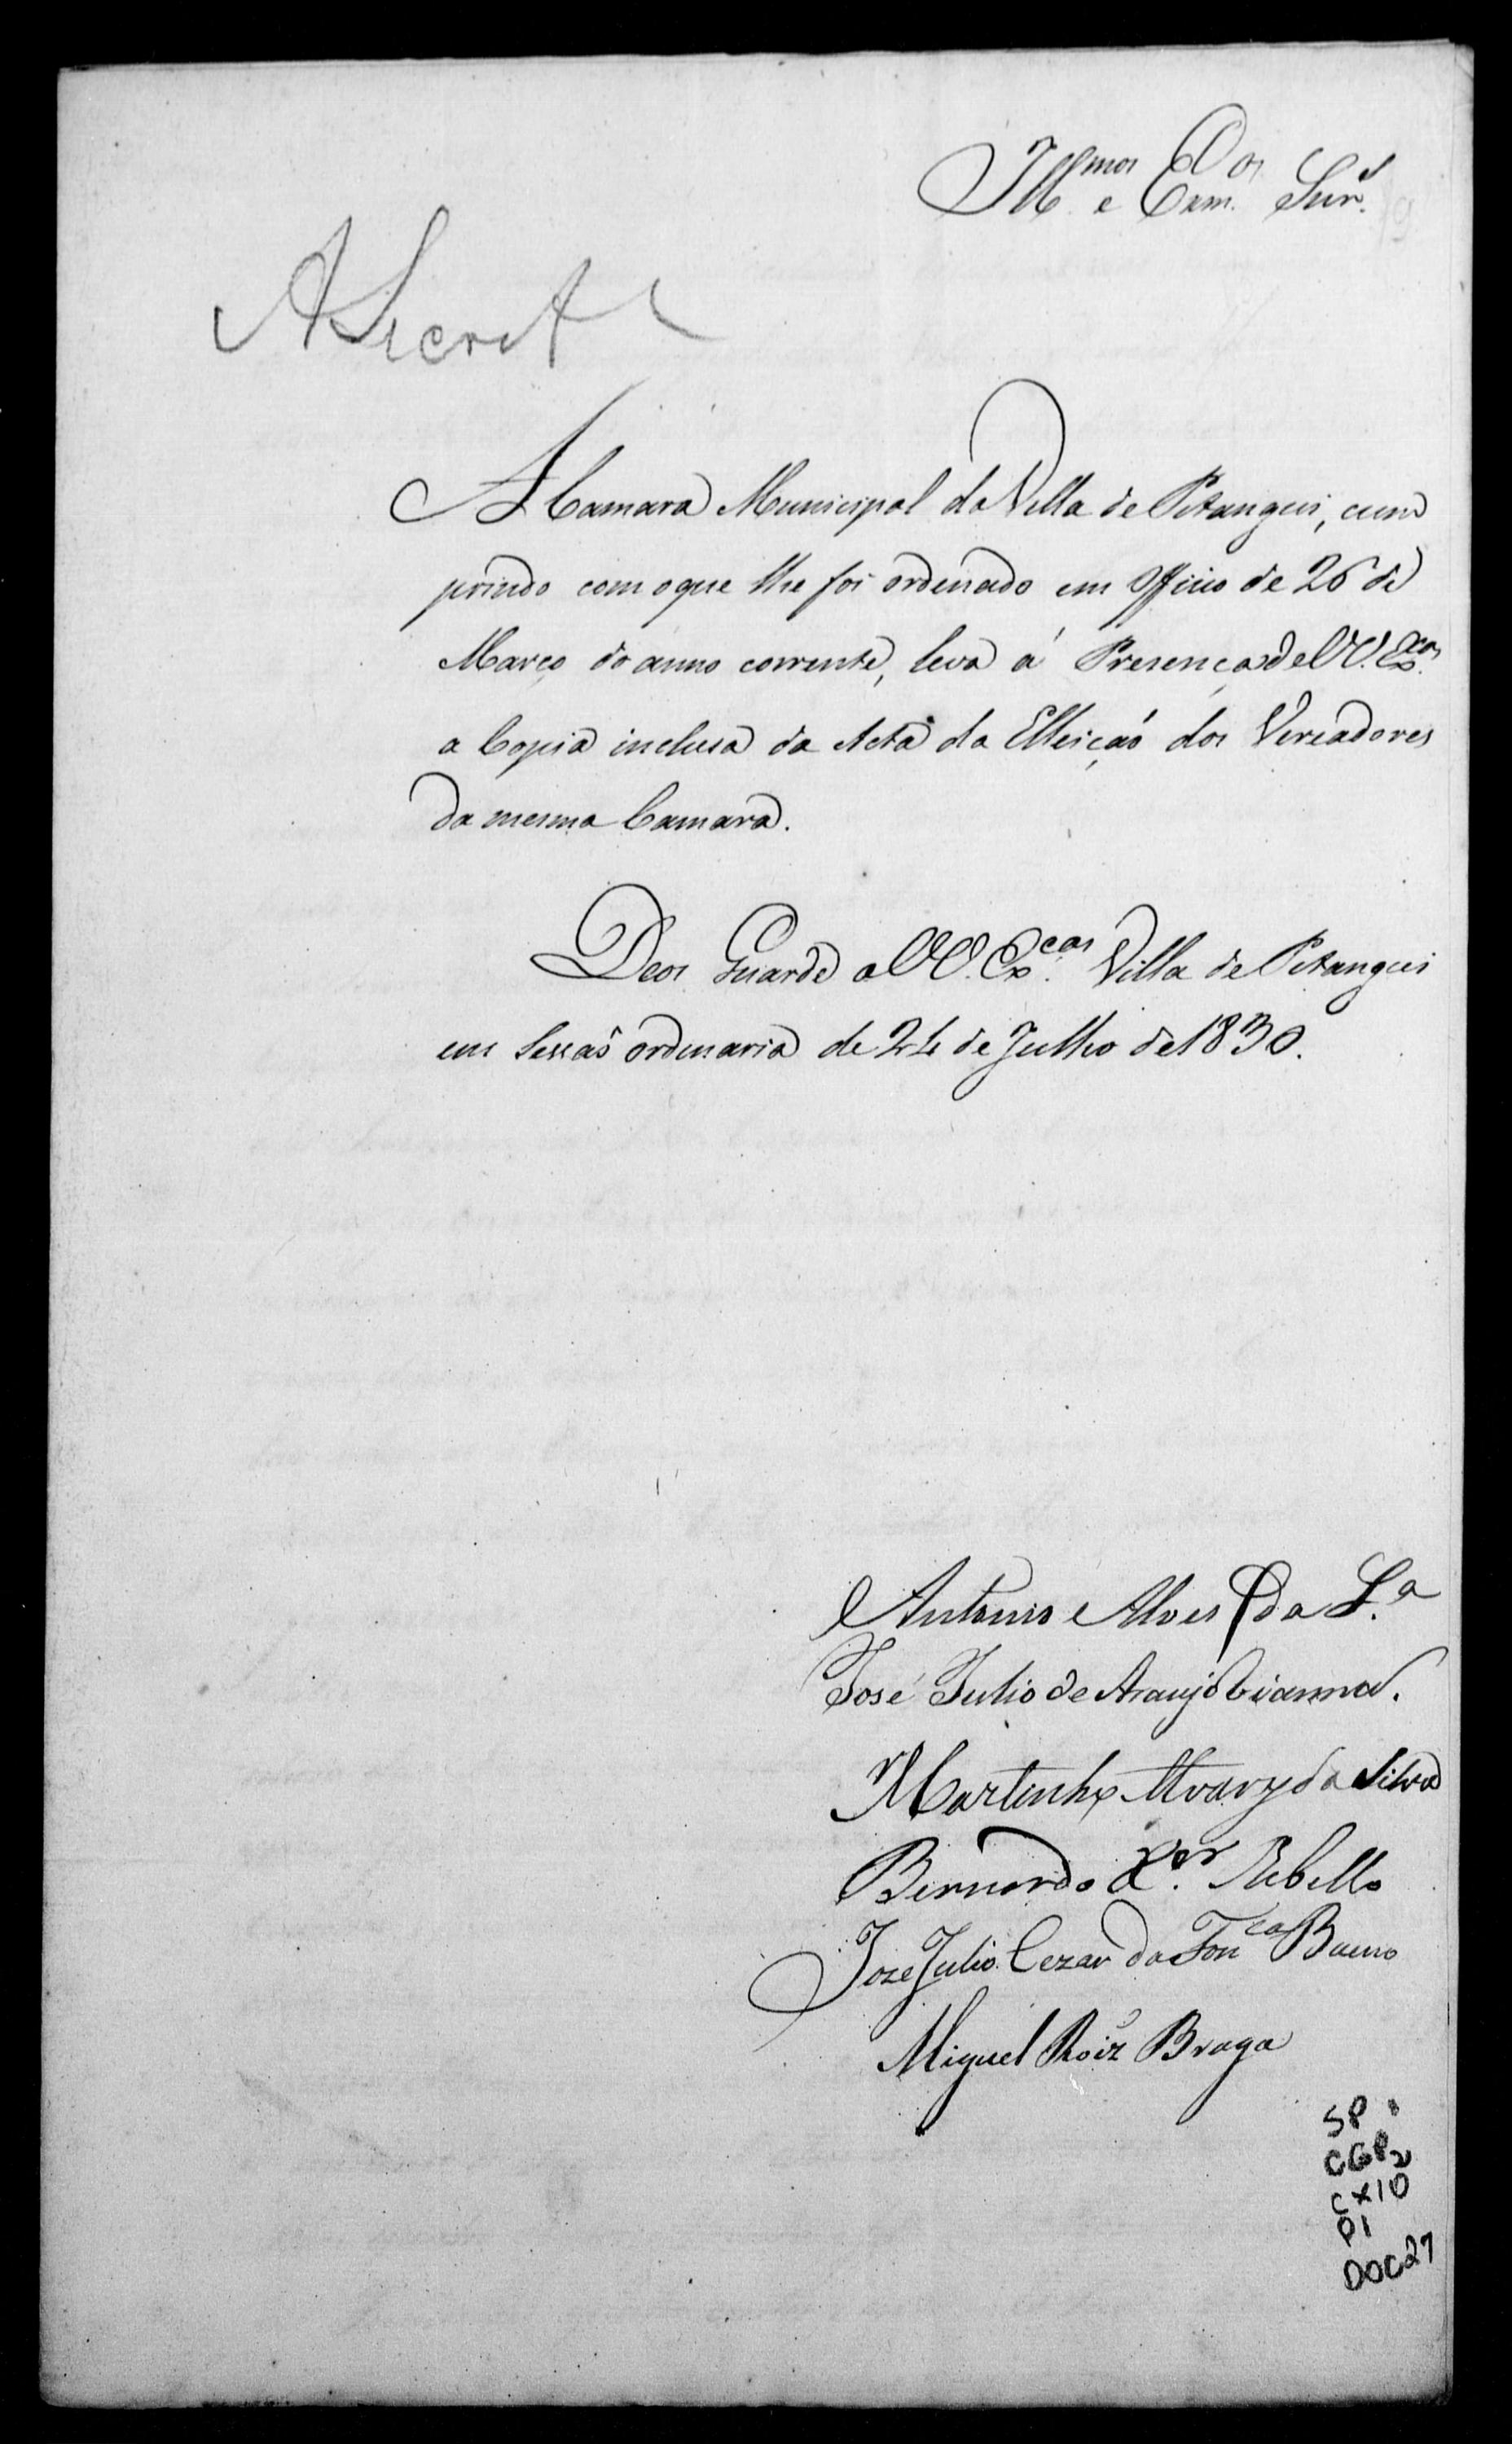 Ill.mos e Exm.os Snr.s
A Secret
A Camara Municipal da Villa de Pitangui, cum
prindo com o que lhe foi ordenado em Officio de 26 de
Março do anno corrente, leva á Presença de VV. Ex.cas
a Copia inclusa da Acta da Elleição dos Vereadores
da mesma Camara.
Deos Guarde a VV. Ex.cas Villa de Pitangui
em Sessaõ ordinaria de 24 de Julho de 1830.
Antonio Alves da S.a
José Julio de Araujo Vianna.
Martinho Alvarz da Silva
Bernardo X.er Rebello
Joze Julio Cezar da Fon.ca
Miguel Roiz Braga
SP
CGP2
CX10
P1
DOC27